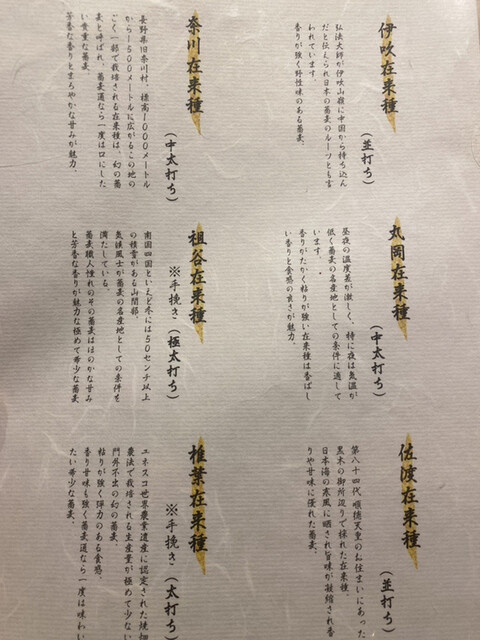 伊吹在来種
(並打ち)
弘法大師が伊吹山麓に中国から持ち込ん
だと伝えられ日本の蕎麦のルーツとも言
われています。
香りが強く野性味のある蕎麦。
奈川在来種
(中太打ち)
長野県旧奈川村、標高1000メートル
から1500メートルに広がるこの地の
ごく一部で栽培される在来種は、幻の蕎
麦と呼ばれ、蕎麦通なら一度は口にした
い貴重な蕎麦。
芳香な香りとまろやかな甘みが魅力。
丸岡在来種
(中太打ち)
昼夜の温度差が激しく、特に夜は気温が
低く蕎麦の名産地としての条件に適して
います。
香りがたかく粘りが強い在来種は香ばし
い香りと食感の良さが魅力。
祖谷在来種
※手挽き(極太打ち)
南国四国といえど冬には50センチ以上
の積雪がある山間部。
気候風土が蕎麦の名産地としての条件を
満たしている。
蕎麦職人憧れのその蕎麦はほのかな甘み
と芳香な香りが魅力な極めて希少な蕎麦
佐渡在来種
(並打ち)
第八十四代 順徳天皇のん住まいにあった
黒木の御所辺りで採れた在来種。
日本海の寒風に晒され旨味が凝縮され香
りや甘味に優れた蕎麦。
椎葉在来種
※手挽き(太打ち)
エネスコ世界農業遺産に認定された焼畑
農法で栽培される生産量が極めて少ない
門外不出の幻の蕎麦。
粘りが強く弾力のある食感。
香り甘味も強く蕎麦通なら一度は味わい
たい希少な蕎麦。